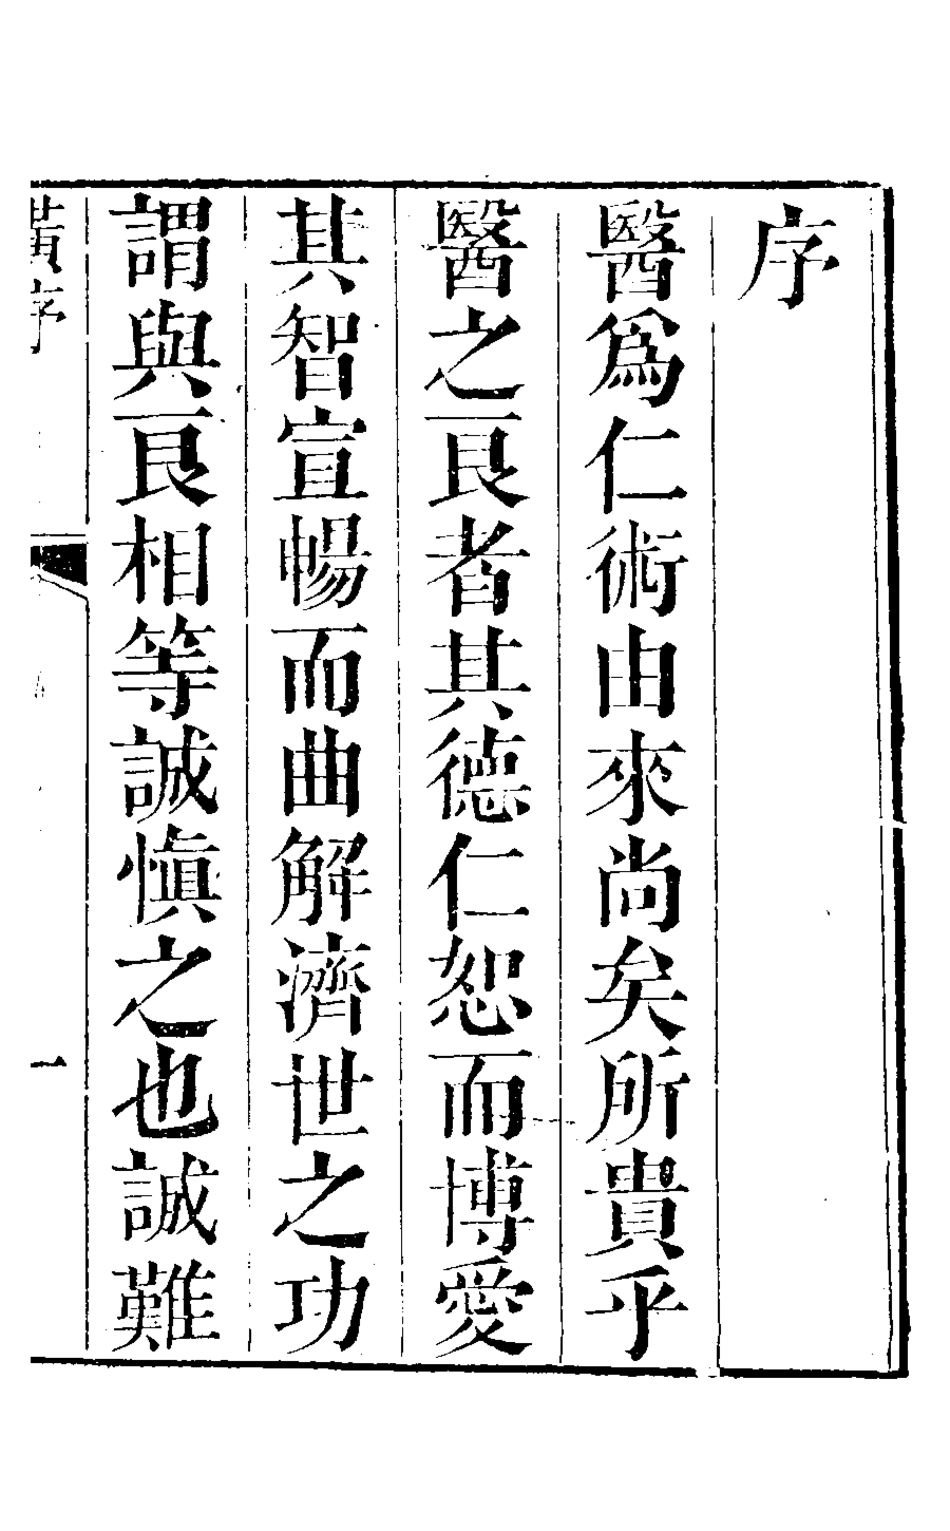 序
醫爲仁術由來尚矣所貴乎
醫之良者其德仁恕而博愛
其智宣暢而曲解濟世之功
謂與良相等誠慎之也誠難
黃序
一